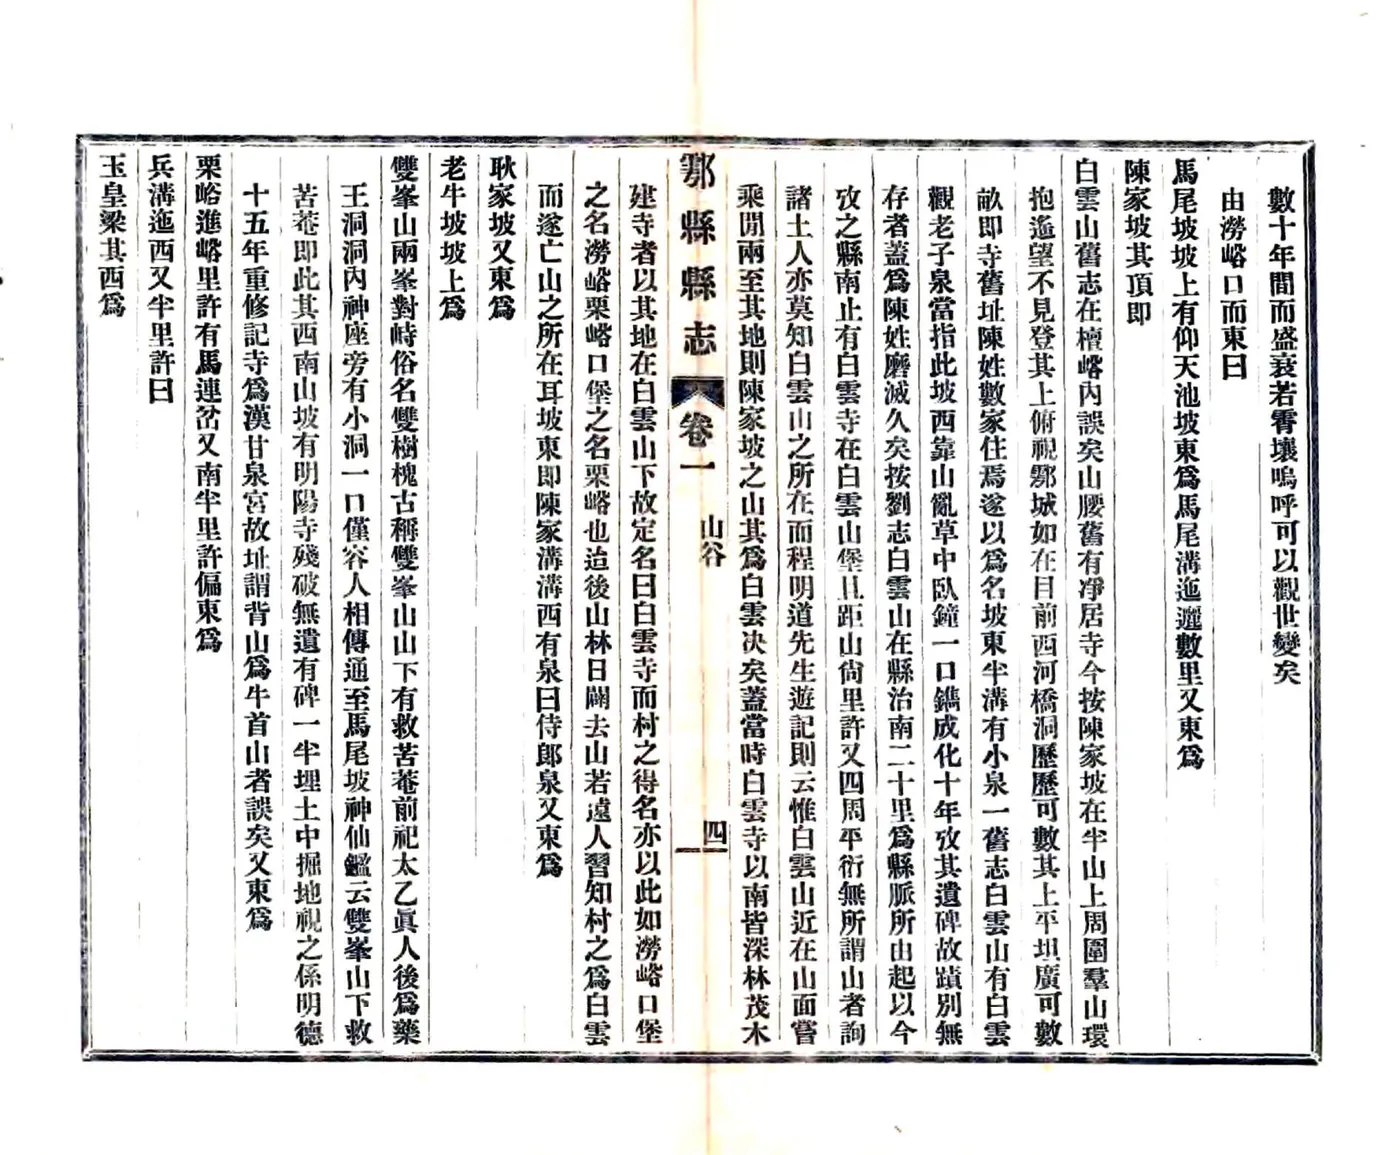 數十年間而盛衰若霄壤嗚呼可以觀世變矣
由澇峪口而東曰
馬尾坡坡上有仰天池坡東爲馬尾溝迤邐數里又東爲
陳家坡其頂即
白雲山舊志在檀峪內誤矣山腰舊有凈居寺今按陳家坡在半山上周圍羣山環
抱遙望不見登其上俯視鄠城如在目前西河橋洞歷歷可數其上平坦廣可數
畝即寺舊址陳姓數家住焉遂以爲名坡東半溝有小泉一舊志白雲山有白雲
觀老子泉當指此坡西靠山亂草中臥鐘一口鐫成化十年攷其遺碑故蹟別無
存者蓋爲陳姓磨滅久矣按劉志白雲山在縣治南二十里爲縣脈所由起以今
攷之縣南止有白雲寺在白雲山堡且距山尙里許又四周平衍無所謂山者詢
諸土人亦莫知白雲山之所在而程明道先生遊記則云惟白雲山近在山面嘗
乘閒兩至其地則陳家坡之山其爲白雲决矣蓋當時白雲寺以南皆深林茂木
鄠縣縣志 卷一 山谷 四
建寺者以其地在白雲山下故定名曰白雲寺而村之得名亦以此如澇峪口堡
之名澇峪栗峪口堡之名栗峪也迨後山林日闢去山若遠人習知村之爲白雲
而遂亡山之所在耳坡東即陳家溝溝西有泉曰侍郎泉又東爲
耿家坡又東爲
老牛坡坡上爲
雙峯山兩峯對峙俗名雙樹槐古稱雙峯山山下有救苦菴前祀太乙眞人後爲藥
王洞洞內神座旁有小洞一口僅容人相傳通至馬尾坡神仙鑑云雙峯山下救
苦菴即此其西南山坡有明陽寺殘破無遺有碑一半埋土中掘地視之係明德
十五年重修記寺爲漢甘泉宮故址謂背山爲牛首山者誤矣又東爲
栗峪進峪里許有馬連岔又南半里許偏東爲
兵溝迤西又半里許曰
玉皇梁其西爲